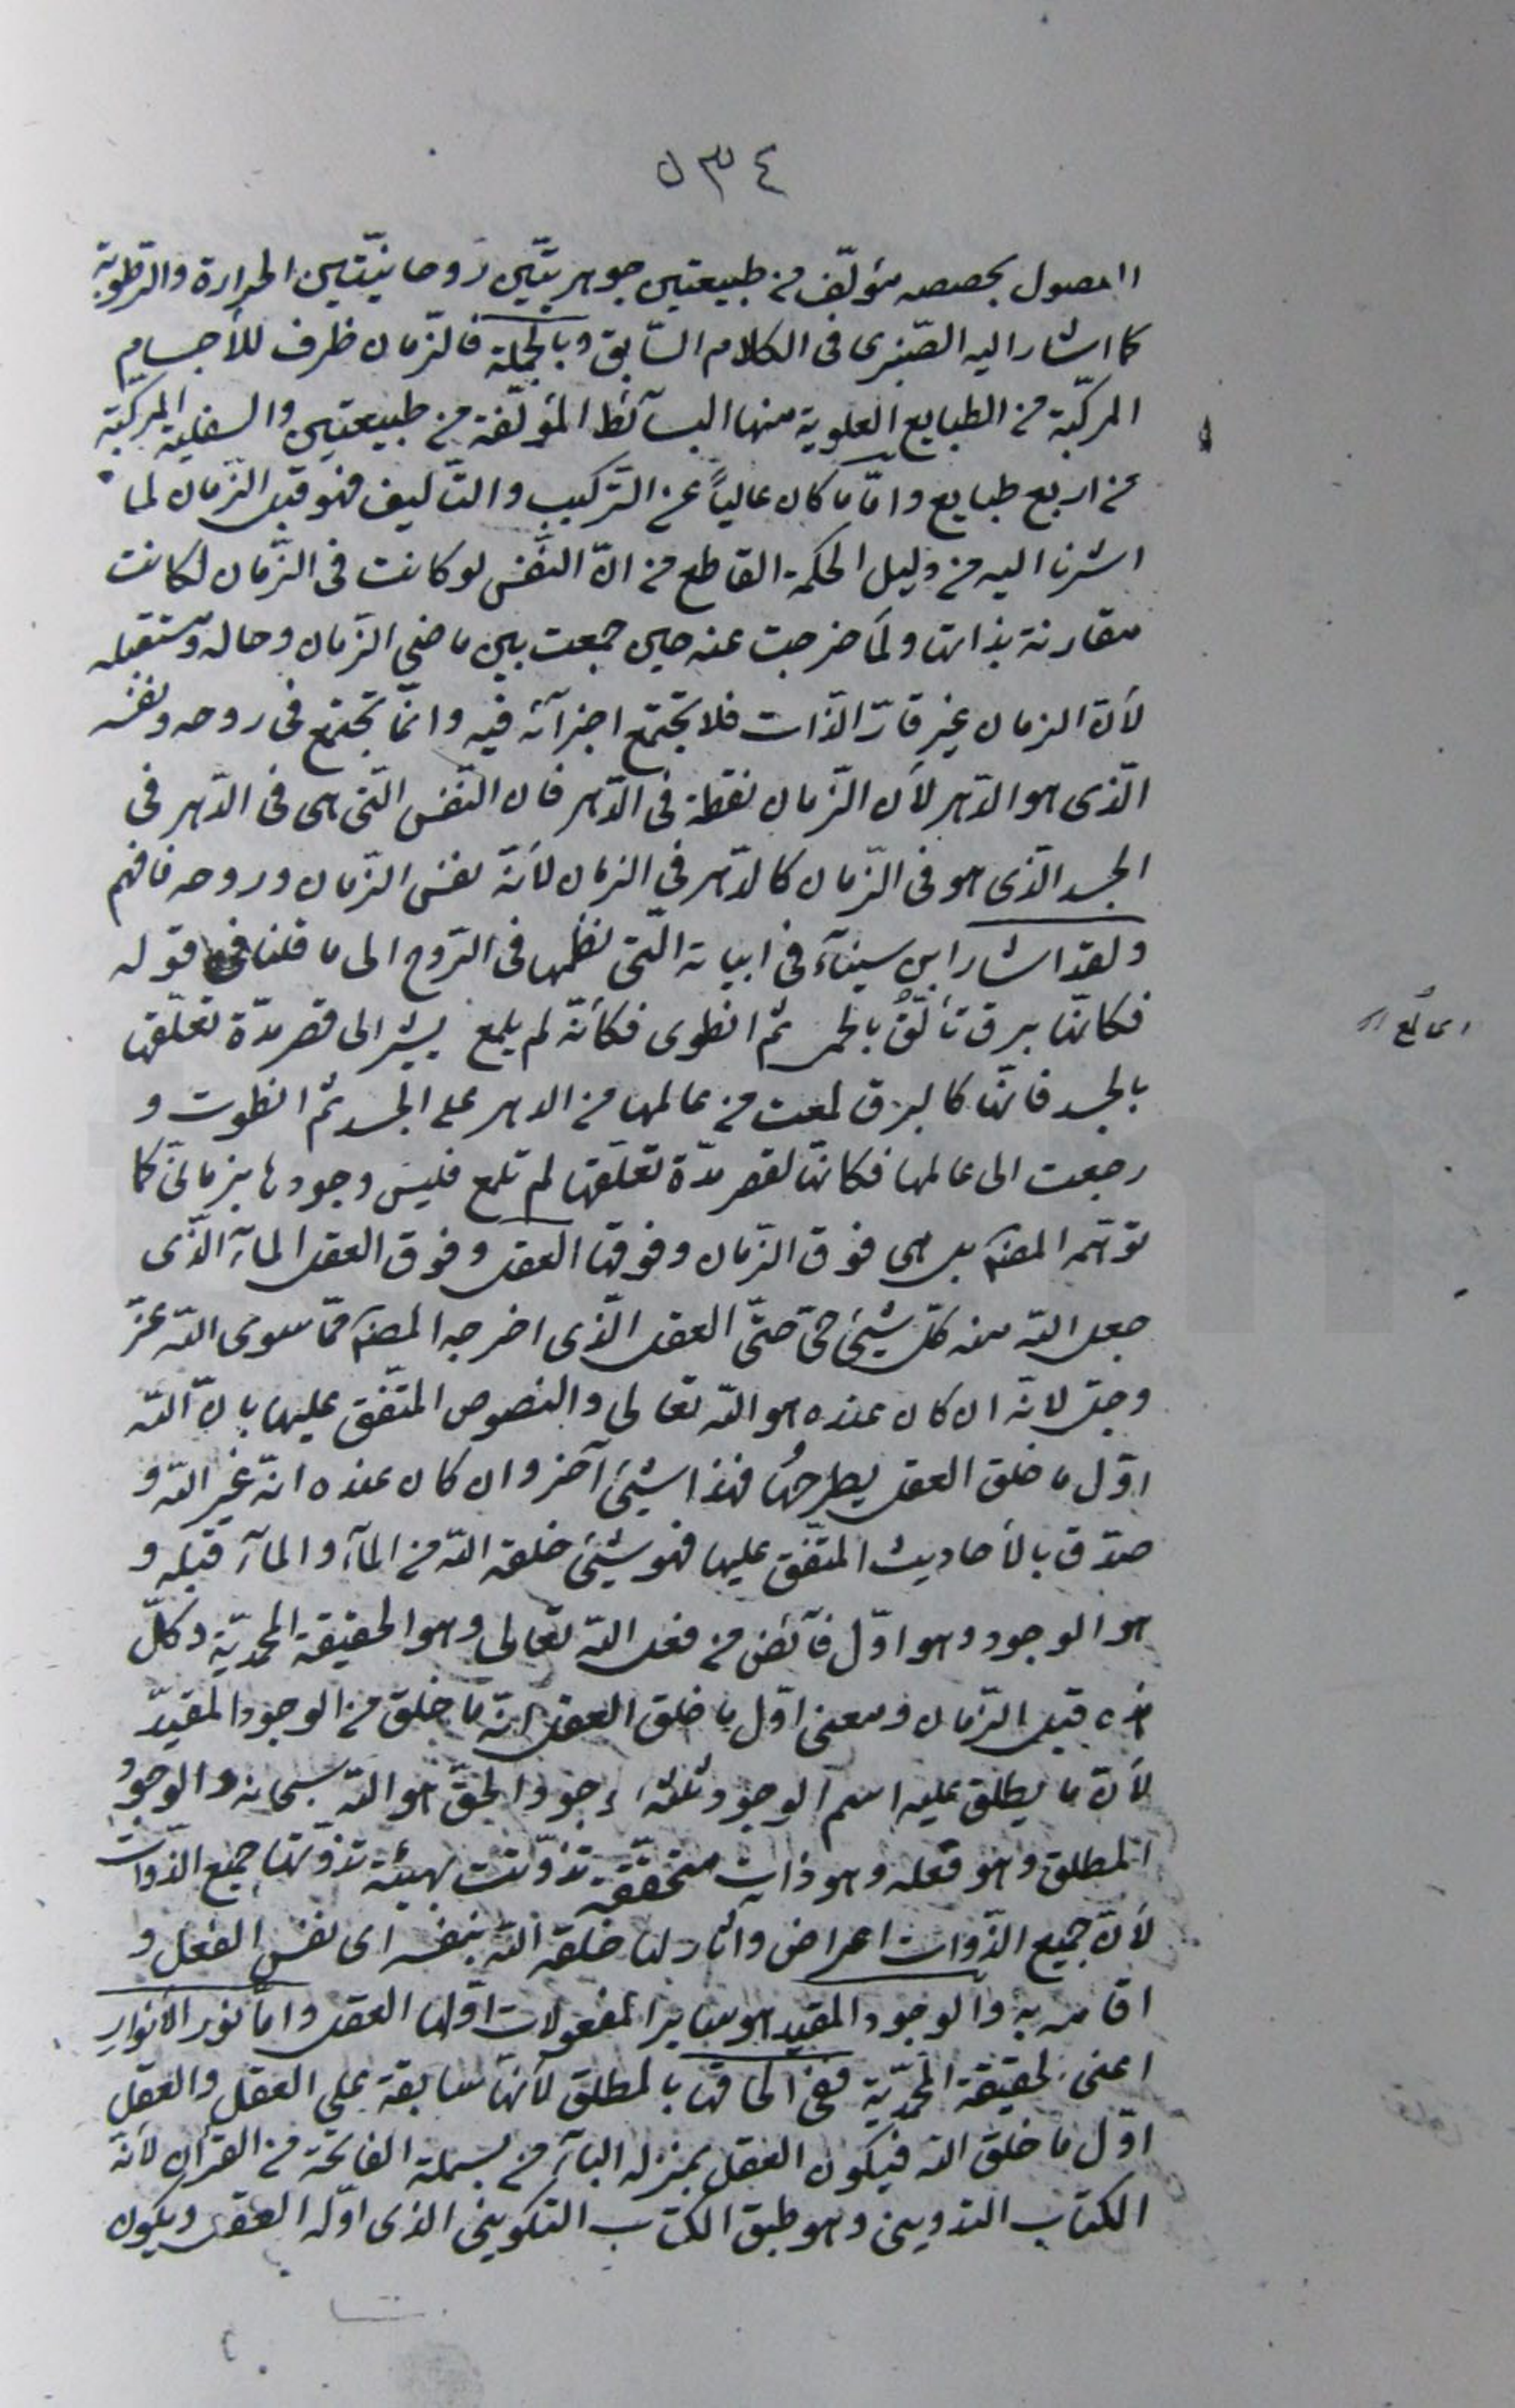 ٥٣٤
المصول بحصصه مؤلّف من طبيعتين جوهريّتين روحانيّتين الحرارة والرّطوبة
كما اشار اليه الصّبرى فى الكلام السّابق وبالجملة فالزّمان ظرف للأجسام
المركّبة من الطبايع العلوية منها البسآئط المؤلّفة من طبيعتين والسفلية المركّبة
من اربع طبايع وامّا ما كان عالياً عن التّركيب والتّأليف فهو قبل الزّمان لما
اشرنا اليه من دليل الحكمة القاطع من انّ النّفس لو كانت فى الزّمان لكانت
مقارنة بذاتها ولما خرجت عنه حين جمعت بين ماضى الزّمان وحاله ومستقبله
لأنّ الزمان غير قارّ الذّات فلا تجتمع اجزآئه فيه وانّما تجتمع فى روحه ونفسه
الّذى هو الدّهر لأن الزّمان نقطة فى الدّهر فان النّفس الّتى هى فى الدّهر فى
الجسد الّذى هو فى الزّمان كالدّهر فى الزمان لأنّه نفس الزّمان وروحه فافهم
ولقد اشار ابن سينآء فى ابياته الّتى نظمها فى الرّوح الى ما قلنا فى قوله
فكانّها برق تألّقُ بالحمى ثم انطوى فكأنّه لم يلمع يشير الى قصر مدّة تعلّقها
اى لمع
بالجسد فانّها كالبرق لمعت من عالمها من الدهر على الجسد ثم انطوت و
رجعت الى عالمها فكانّها لقصر مدّة تعلّقها لم تلمع فليس وجودها بزمانىّ كما
توهّمه المصنّف بل هى فوق الزّمان وفوقها العقل وفوق العقل المآء الّذى
جعل الله منه كلّ شيئ حىّ حتّى العقل الّذى اخرجه المصنّف ممّا سوى الله عزّ
وجلّ لانّه ان كان عنده هو الله تعالى والنصوص المتّفق عليها بانّ الله
اوّل ما خلق العقل يطرحها فهذا شيئ آخر وان كان عنده انّه غير الله و
صدّق بالأحاديث المتّفق عليها فهو شيئ خلقه الله من المآء والمآء قبله و
هو الوجود وهو اوّل فآئض من فعل الله تعالى وهو الحقيقة المحمّديّة وكلّ
هذه قبل الزّمان ومعنى اوّل ما خلق العقل انّه ما خلق من الوجود المقيّد
لأنّ ما يطلق عليه اسم الوجود ثلثة وجود الحقّ هو الله سبحانه والوجود
المطلق وهو فعله وهو ذات متحقّقة تذوّتت بهيئة تذوّتها جميع الذّوات
لأنّ جميع الذّوات اعراض وآثار لها خلقه الله بنفسه اى نفس الفعل و
اقامه به والوجود المقيد هو ساير المفعولات اوّلها العقل وامّا نور الأنوار
اعنى الحقيقة المحمّديّة ففى الحاقها بالمطلق لأنها سابقة على العقل والعقل
اوّل ما خلق الله فيكون العقل بمنزلة البآء من بسملة الفاتحة من القرآن لأنّه
الكتاب التدوينى وهو طبق الكتاب التكوينى الذى اوّله العقل ويكون